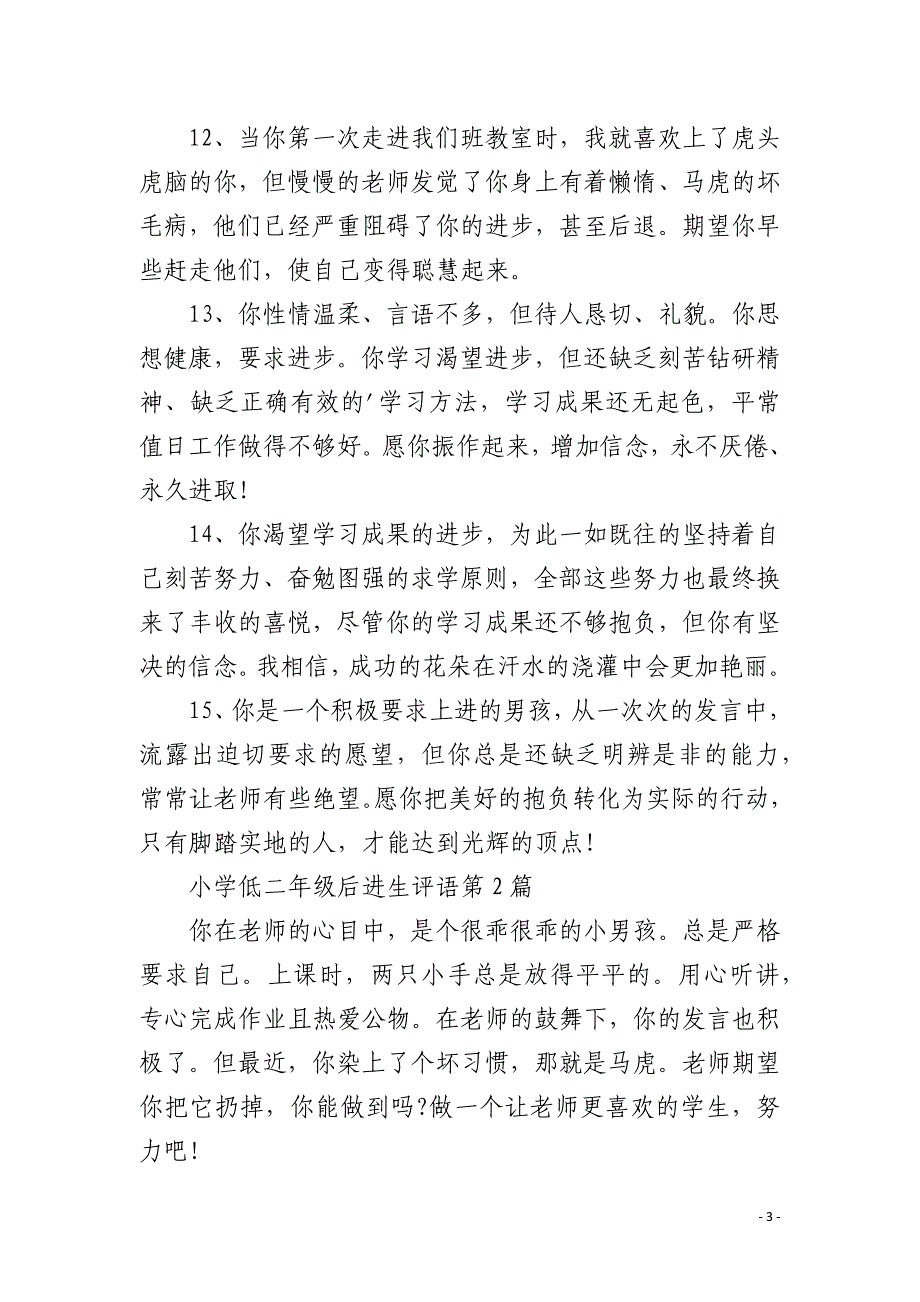 12、当你第一次走进我们班教室时，我就喜欢上了虎头
虎脑的你，但慢慢的老师发觉了你身上有着懒惰、马虎的坏
毛病，他们已经严重阻碍了你的进步，甚至后退。期望你早
些赶走他们，使自己变得聪慧起来。
13、你性情温柔、言语不多，但待人恳切、礼貌。你思
想健康，要求进步。你学习渴望进步，但还缺乏刻苦钻研精
神、缺乏正确有效的′学习方法，学习成果还无起色，平常
值日工作做得不够好。愿你振作起来，增加信念，永不厌倦、
永久进取！
14、你渴望学习成果的进步，为此一如既往的坚持着自
己刻苦努力、奋勉图强的求学原则，全部这些努力也最终换
来了丰收的喜悦，尽管你的学习成果还不够抱负，但你有坚
决的信念。我相信，成功的花朵在汗水的浇灌中会更加艳丽。
15、你是一个积极要求上进的男孩，从一次次的发言中，
流露出迫切要求的愿望，但你总是还缺乏明辨是非的能力，
常常让老师有些绝望。愿你把美好的抱负转化为实际的行动，
只有脚踏实地的人，才能达到光辉的顶点！
小学低二年级后进生评语第 2 篇
你在老师的心目中，是个很乖很乖的小男孩。总是严格
要求自己。上课时，两只小手总是放得平平的。用心听讲，
专心完成作业且热爱公物。在老师的鼓舞下，你的发言也积
极了。但最近，你染上了个坏习惯，那就是马虎。老师期望
你把它扔掉，你能做到吗?做一个让老师更喜欢的学生，努
力吧！
- 3 -